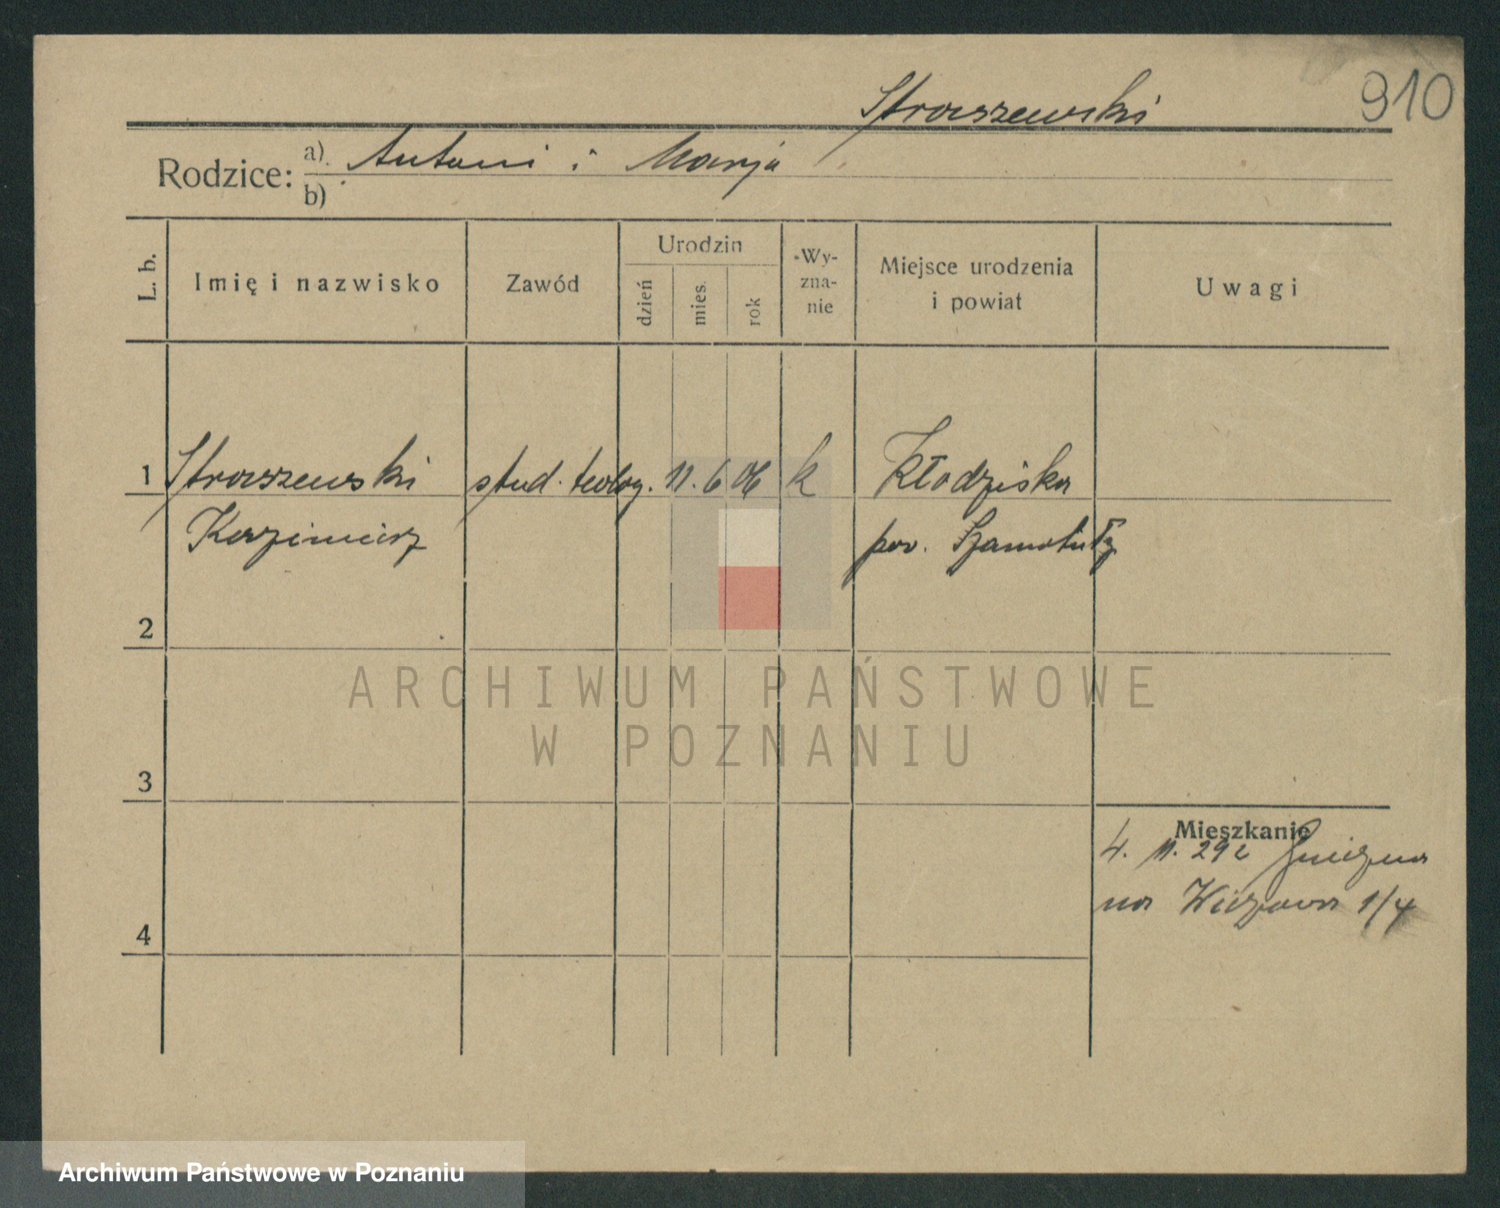 Straszewski
910
Rodzice: a) Antoni i Marja
b)
L. b.
Imię i nazwisko
Zawód
Urodzin
dzień
mies.
rok
Wy-
zna-
nie
Miejsce urodzenia
i powiat
Uwagi
1 Straszewski stud. teolog. 11. 6 06 k Kłodziska
Kazimierz pow. Szamotuły
2
ARCHIWUM PAŃSTWOWE
W POZNANIU
3
Mieszkanie
4. 11. 292 Gniezna
na Wieżowa 1/4
4
Archiwum Państwowe w Poznaniu